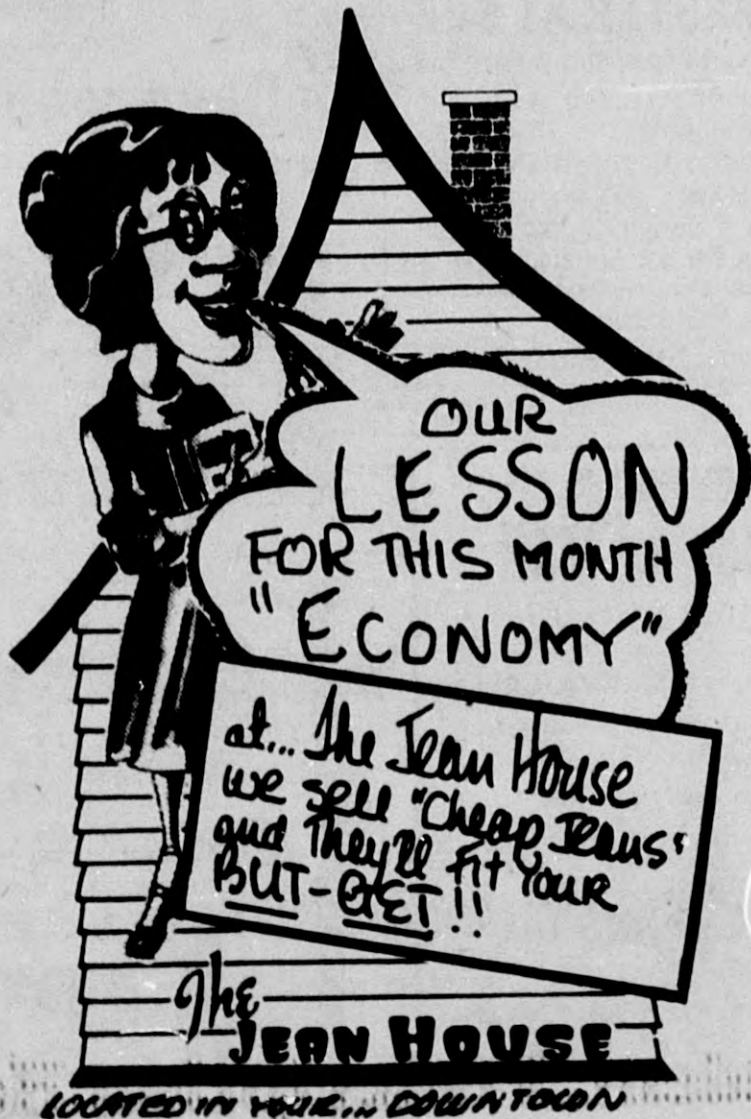 OUR
LESSON
FOR THIS MONTH
"ECONOMY"
at... The Jean House
we sell "Cheap Jeans"
and They'll Fit Your
BUT-GET!!
The
JEAN HOUSE
LOCATED IN YOUR... DOWNTOWN